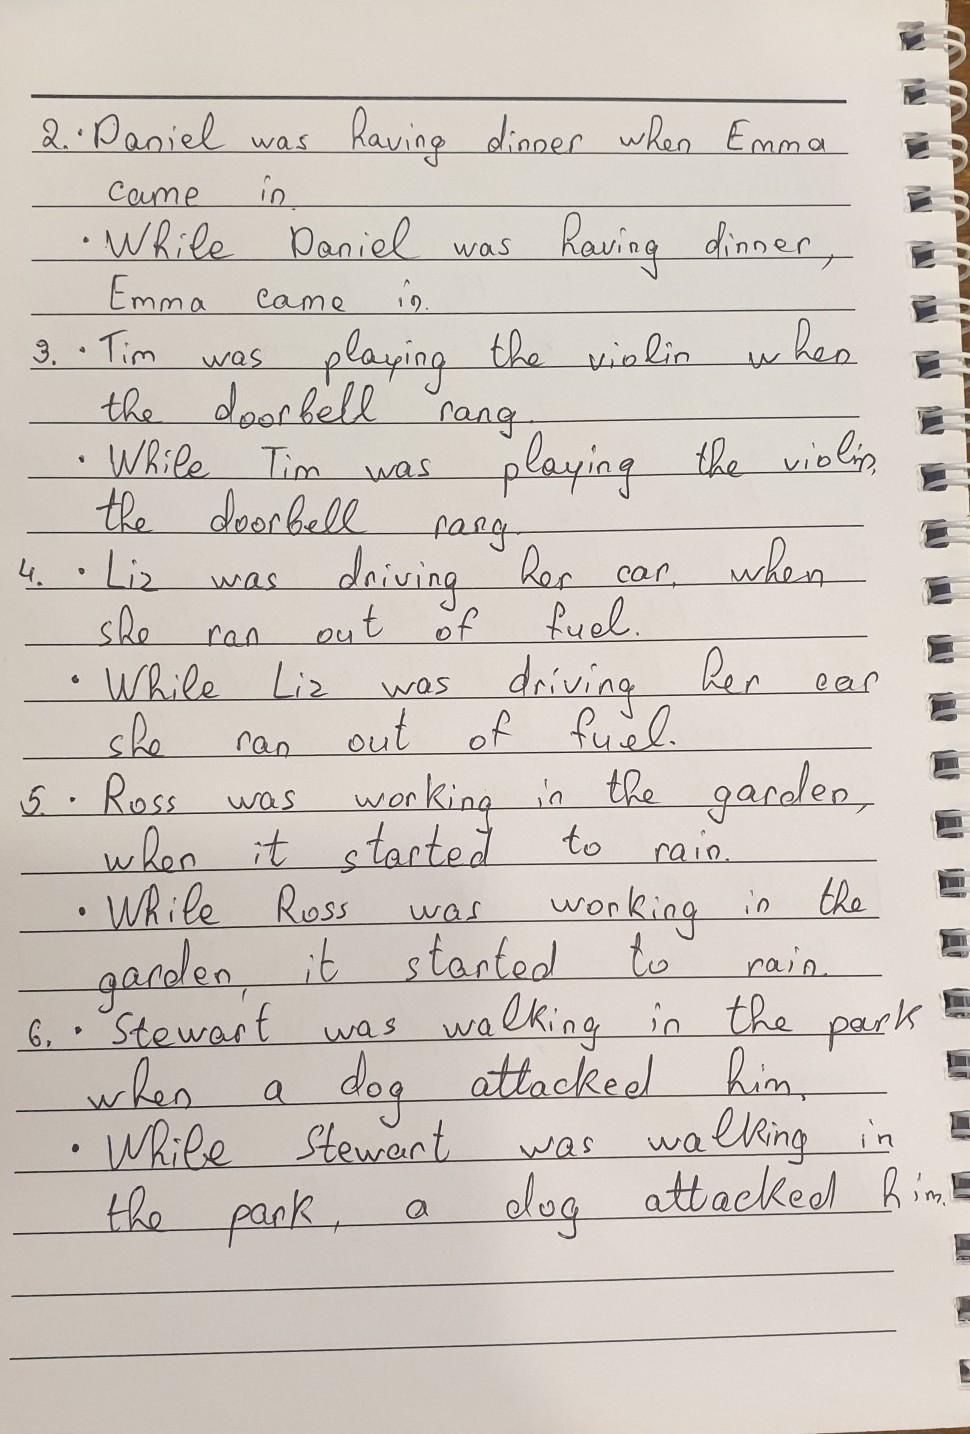 2. · Daniel was having dinner when Emma
came in.
· While Daniel was having dinner,
Emma came in.
3. · Tim was playing the violin when
the doorbell rang.
· While Tim was playing the violin,
the doorbell rang.
4. · Liz was driving her car, when
she ran out of fuel.
· While Liz was driving her car
she ran out of fuel.
5. · Ross was working in the garden,
when it started to rain.
· While Ross was working in the
garden, it started to rain.
6. · Stewart was walking in the park
when a dog attacked him.
· While Stewart was walking in
the park, a dog attacked him.